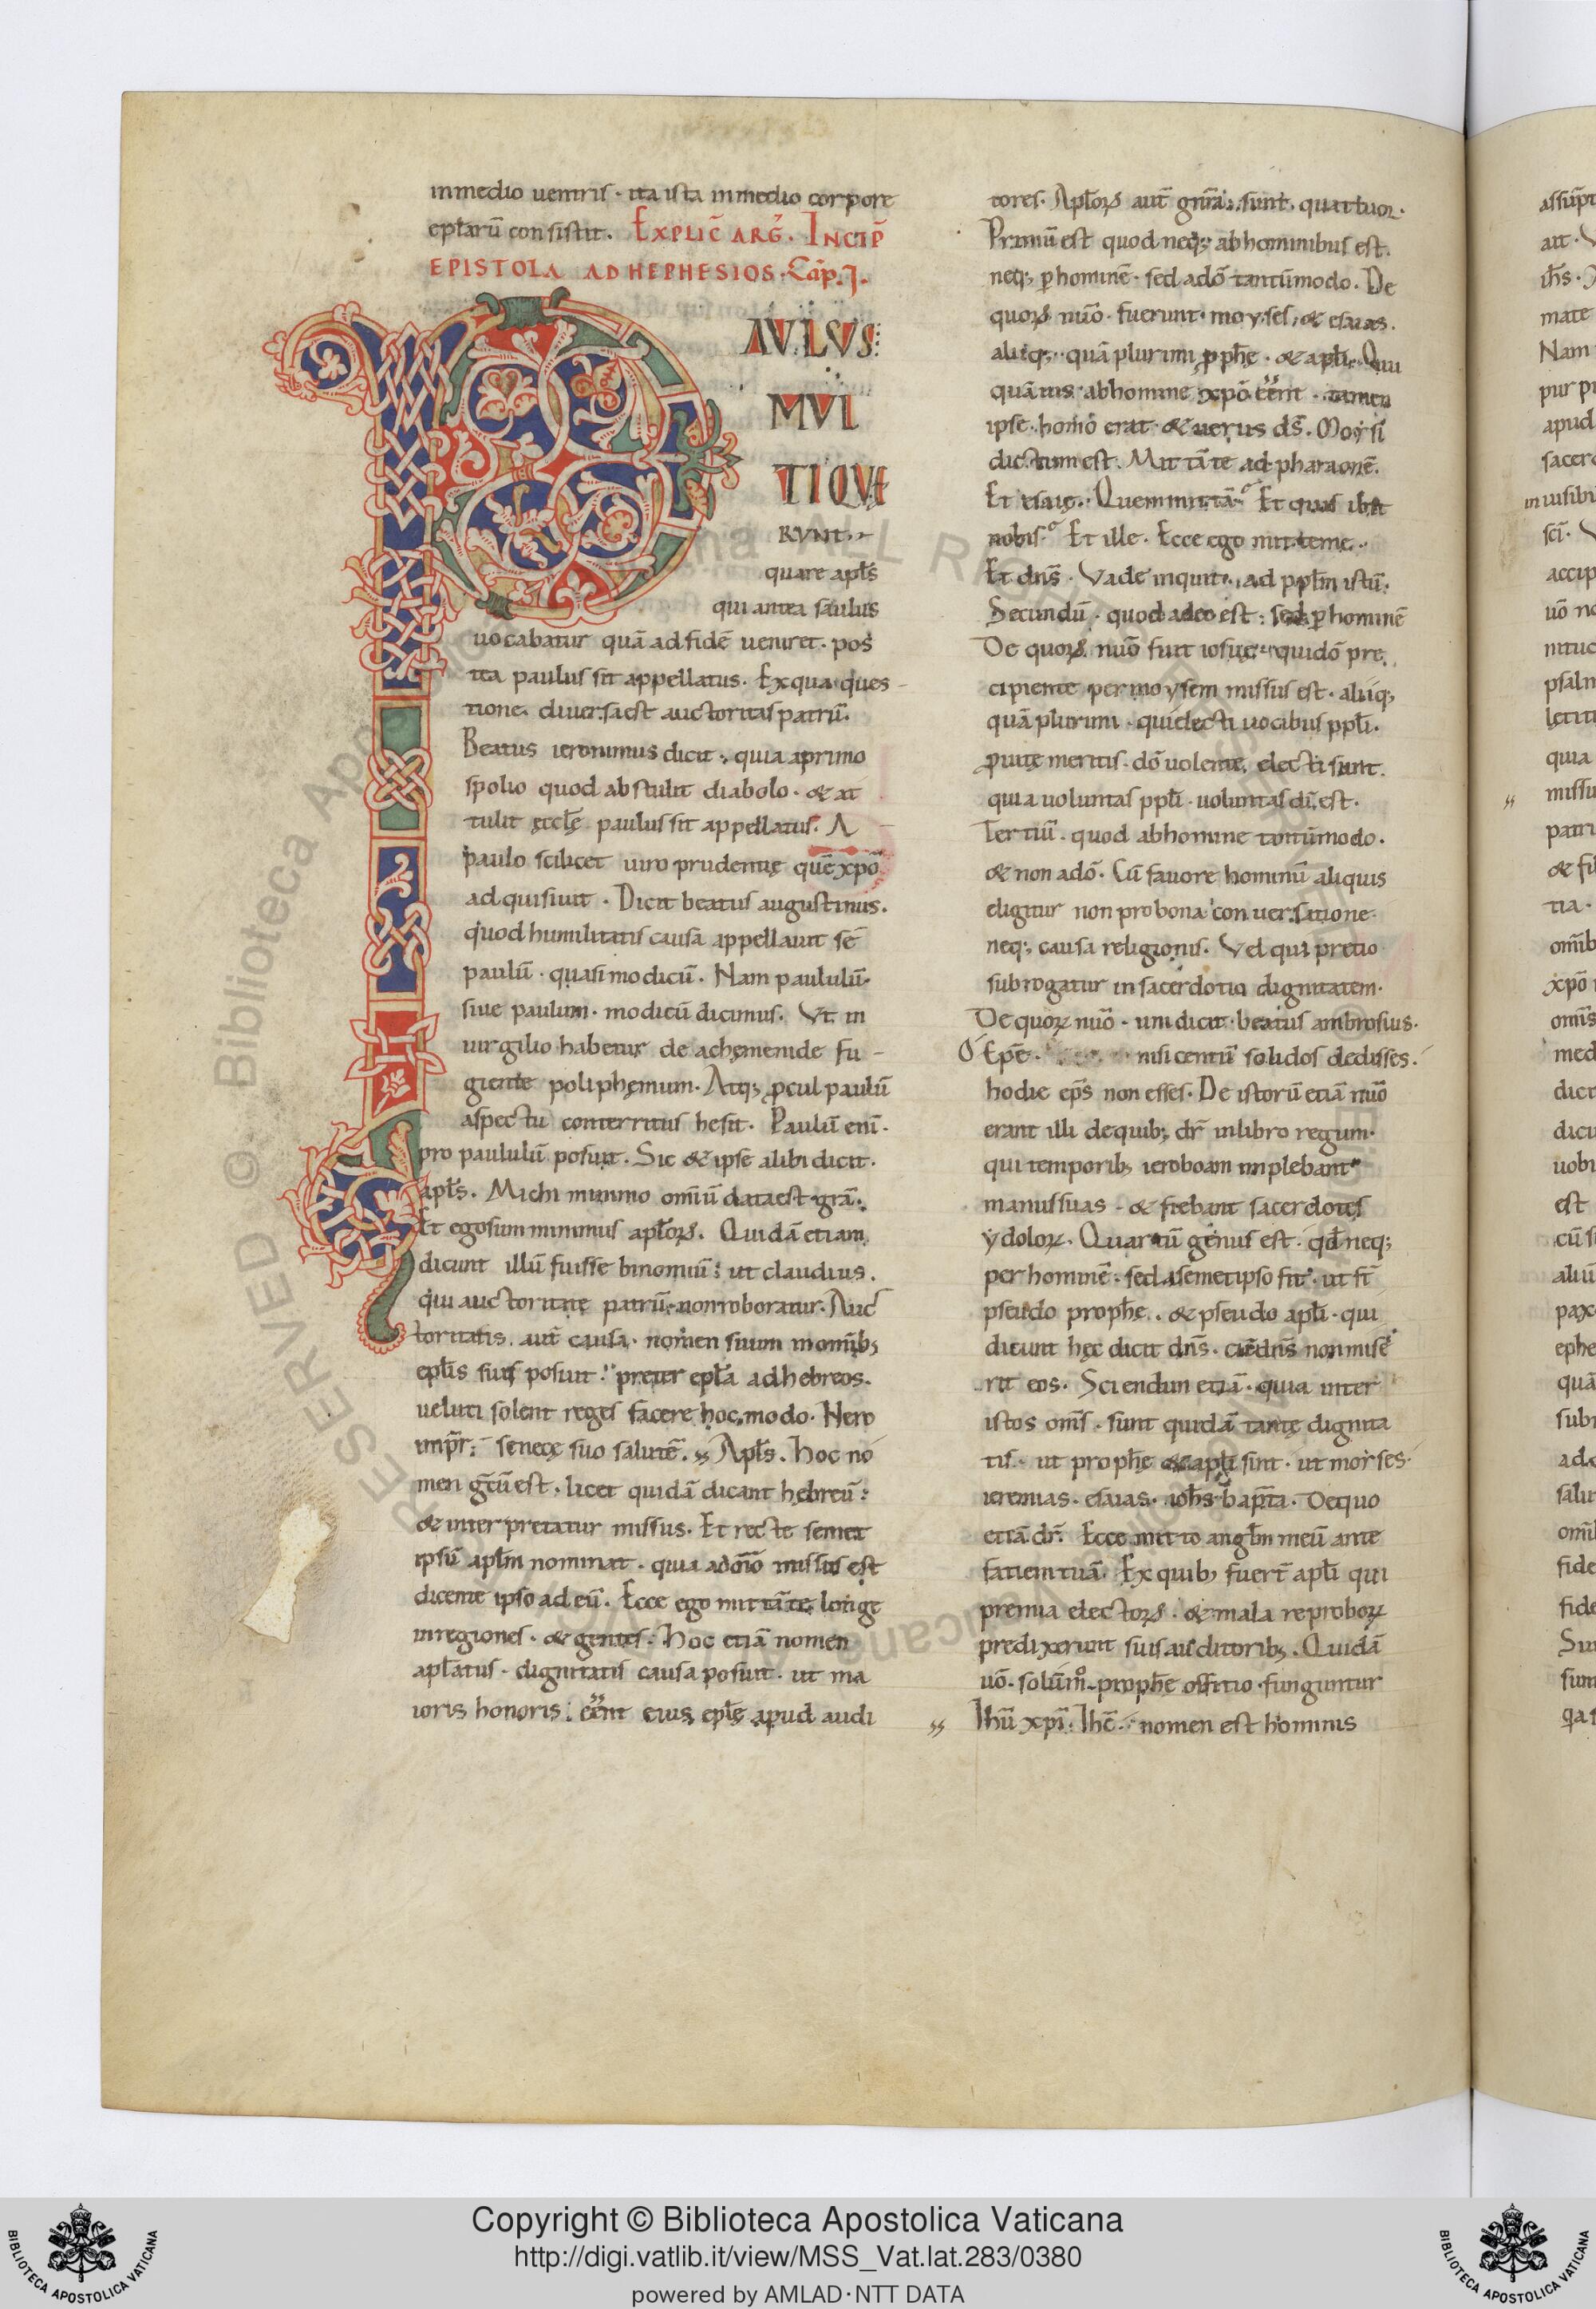 inmedio uentris · ita ista inmedio corpore
eplarū consistit. EXPLIC̄ ARḠ. INCIP̄
EPISTOLA AD HEPHESIOS. Cāp. I.
AULUS
MUL
TI QUE
RUNT.
quare apl̄s
qui antea saulus
uocabatur quā ad fidē ueniret · pos
tea paulus sit appellatus. Ex qua ques
tione. diuersa est auctoritas patrū.
Beatus ieronimus dicit; quia a primo
spolio quod abstulit diabolo · & at
tulit ęcclę̄ paulus sit appellatus. A
paulo scilicet uiro prudentię quē xpō
adquisiuit · Dicit beatus augustinus.
quod humilitatis causa appellauit sē
paulū · quasi modicū. Nam paululū·
siue paulum · modicū dicimus. Ut in
uirgilio habetur de achęmenide fu
giente poliphęmum. Atq; ꝓcul paulū
aspectu conterritus hesit. Paulū eni·
pro paululū posuit. Sic & ipse alibi dicit.
apl̄s. Michi minimo omīū data est grā.
Et ego sum minimus apl̄oꝝ. Quidā etiam
dicunt illū fuisse binomiū: ut claudius.
qui auctoritate patrū · non roboratur. Auc
toritatis. aut̄ causa · nomen suum in omīb;
epl̄is suis posuit: preter epl̄a ad hebreos.
ueluti solent reges facere hoc modo. Nero
imp̄r; senecę suo salutē. Apl̄s. hoc no
men gc̄ū est · licet quidā dicant hębreū:
& interpretatur missus. Et recte semet
ipsū apl̄m nominat · quia a dōīo missus est
dicente ipso ad eū. Ecce ego mittā te longe
in regiones · & gentes: hoc etiā nomen
apl̄atus · dignitatis causa posuit · ut ma
ioris honoris. eēnt eius epl̄ę apud audi
tores. Apl̄oꝝ aut̄ gn̄ra sunt quattuor.
Primū est quod neq; ab hominibus est.
neq; ꝑ hominē · sed a dō tantūmodo. De
quoꝝ nuō · fuerunt moyses, & esaias.
aliiq; quā plurimi ꝓphę̄ · & apl̄i. Qui
quāuis ab homine xpō eēnt · tamen
ipse homo erat & uerus ds̄. Moysi
dictum est. Mittā te ad pharaonē.
Et esaię. Quem mittā? Et quis ibit
nobis? Et ille. Ecce ego mitte me.
Et dn̄s. Vade inquit, ad ppl̄m istū.
Secundū · quod a deo est: sed ꝑ hominē
De quoꝝ nuō fuit iosuę qui dō pre
cipiente per moysem missus est · aliiq;
quā plurimi · qui electi uocibus ppl̄i.
ꝓ uitę meritis · dō uolente, electi sunt.
quia uoluntas ppl̄i · uoluntas dī, est.
Tertiū · quod ab homine tantūmodo.
& non a dō. Cū fauore hominū aliquis
eligitur non pro bona conuersatione
neq; causa religionis. Vel qui pretio
subrogatur in sacerdotii dignitatem.
De quoꝝ nuō · uni dicit beatus ambrosius.
O Epē. nisi centū solidos dedisses.
hodie ep̄s non esses. De istorū etiā nuō
erant illi de quib; dr̄ in libro regum·
qui temporib; ieroboam implebant
manus suas · & fiebant sacerdotes
ydoloꝝ. Quartū genus est · qd̄ neq;
per hominē: sed a semetipso fit · ut st̄
pseudo prophę̄. & pseudo apl̄i · qui
dicunt hęc dicit dn̄s. cū dn̄s non mise
rit eos. Sciendum etiā · quia inter
istos omīs · sunt quidā tantę dignita
tis · ut prophę̄ & apl̄i sint · ut moyses·
ieremias. esaias. ioh̄s bap̄ta. De quo
etiā dr̄. Ecce mitto angl̄m meū ante
faciem tuā. Ex quib; fuer̄t apl̄i qui
premia electoꝝ · & mala reproboꝝ
predixerunt suis auditorib;. Quidā
uō. solūmō prophę̄ offitio funguntur
Ihū xpī. Ihc̄. nomen est hominis
Copyright © Biblioteca Apostolica Vaticana
http://digi.vatlib.it/view/MSS_Vat.lat.283/0380
powered by AMLAD·NTT DATA
BIBLIOTECA APOSTOLICA VATICANA
BIBLIOTECA APOSTOLICA VATICANA